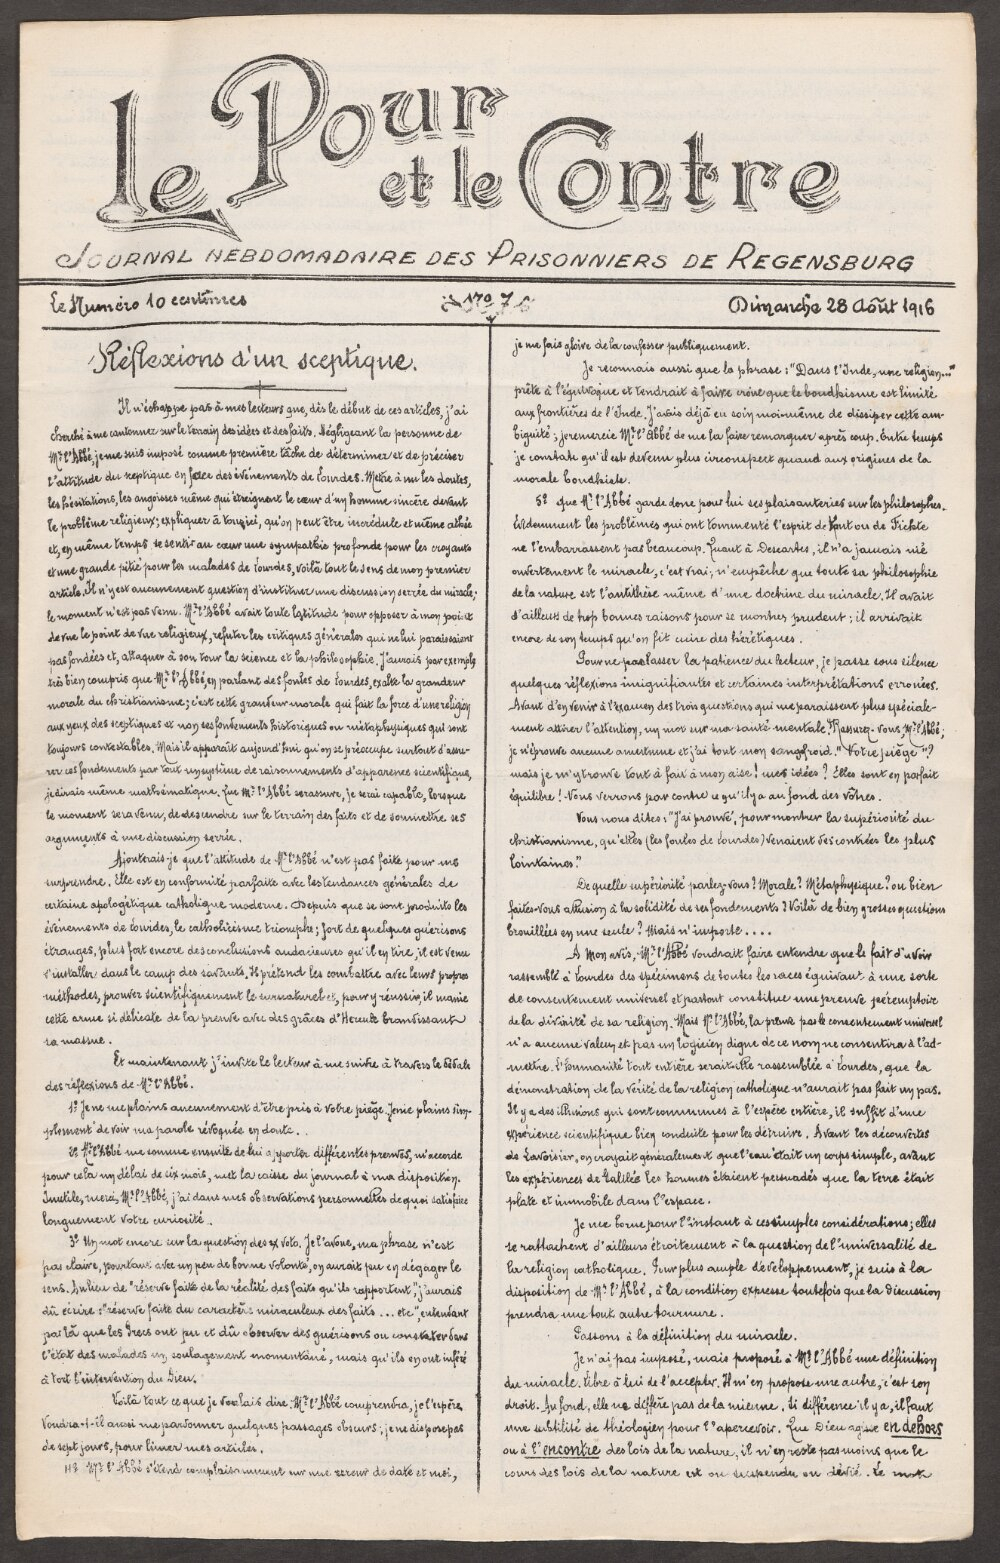 Le Pour
et le Contre
Journal hebdomadaire des Prisonniers de Regensburg
Le Numéro 10 centimes
No 7
Dimanche 28 Août 1916
Réflexions d'un sceptique.
Il n'échappe pas à mes lecteurs que, dès le début de ces articles, j'ai
cherché à me cantonner sur le terrain des idées et des faits. Négligeant la personne de
Mr. l'Abbé, je me suis imposé comme première tâche de déterminer et de préciser
l'attitude du sceptique en face des événements de Lourdes. Mettre à nu les doutes,
les hésitations, les angoisses même qui étreignent le cœur d'un homme sincère devant
le problème religieux; expliquer à qu'on peut être incrédule et même athée
et, en même temps se sentir au cœur une sympathie profonde pour les croyants
et une grande pitié pour les malades de Lourdes, voilà tout le sens de mon premier
article. Il n'y est aucunement question d'instituer une discussion serrée du miracle;
le moment n'est pas venu. Mr. l'Abbé avait toute latitude pour opposer à mon point
de vue le point de vue religieux, réfuter les critiques générales qui ne lui paraissaient
pas fondées et, attaquer à son tour la science et la philosophie. J'aurais par exemple
très bien compris que Mr. l'Abbé, en parlant des foules de Lourdes, exalte la grandeur
morale du christianisme; c'est cette grandeur morale qui fait la force d'une religion
aux yeux des sceptiques et non ses fondements historiques ou métaphysiques qui sont
toujours contestables. Mais il apparaît aujourd'hui qu'on se préoccupe surtout d'assu-
rer ces fondements par tout un système de raisonnements d'apparence scientifique,
je dirais même mathématique. Que Mr. l'Abbé se rassure, je serai capable, lorsque
le moment sera venu, de descendre sur le terrain des faits et de soumettre ses
arguments à une discussion serrée.
Ajouterais-je que l'attitude de Mr. l'Abbé n'est pas faite pour me
surprendre. Elle est en conformité parfaite avec les tendances générales de
certaine apologétique catholique moderne. Depuis que se sont produits les
événements de Lourdes, le catholicisme triomphe; fort de quelques guérisons
étranges, plus fort encore des conclusions audacieuses qu'il en tire, il est venu
s'installer dans le camp des savants. Il prétend les combattre avec leurs propres
méthodes, prouver scientifiquement le surnaturel et, pour y réussir, il manie
cette arme si délicate de la preuve avec des grâces d'Hercule brandissant
sa massue.
Et maintenant j'invite le lecteur à me suivre à travers le dédale
des réflexions de Mr. l'Abbé.
1º Je ne me plains aucunement d'être pris à votre piège. Je me plains sim-
plement de voir ma parole révoquée en doute..
2º Mr. l'Abbé me somme ensuite de lui apporter différentes preuves, m'accorde
pour cela un délai de six mois, met la caisse du journal à ma disposition.
Inutile, merci, Mr. l'Abbé, j'ai dans mes observations personnelles de quoi satisfaire
longuement votre curiosité..
3º Un mot encore sur la question des ex voto. Je l'avoue, ma phrase n'est
pas claire, pourtant avec un peu de bonne volonté, on aurait pu en dégager le
sens. Au lieu de "réserve faite de la réalité des faits qu'ils rapportent", j'aurais
dû écrire: "réserve faite du caractère miraculeux des faits ... etc", entendant
par là que les Grecs ont pu et dû observer des guérisons ou constater dans
l'état des malades un soulagement momentané, mais qu'ils en ont inféré
à tort l'intervention du Dieu.
Voilà tout ce que je voulais dire. Mr. l'Abbé comprendra, je l'espère.
Voudra-t-il aussi me pardonner quelques passages obscurs; je ne dispose pas
de sept jours, pour limer mes articles.
4º Mr. l'Abbé s'étend complaisamment sur une erreur de date et moi,
je me fais gloire de la confesser publiquement.
Je reconnais aussi que la phrase: "Dans l'Inde, une religion..."
prête à l'équivoque et tendrait à faire croire que le boudhisme est limité
aux frontières de l'Inde. J'avais déjà eu soin moi même de dissiper cette am-
biguité; je remercie Mr. l'Abbé de me la faire remarquer après coup. Entre temps
je constate qu'il est devenu plus circonspect quand aux origines de la
morale boudhiste.
5º Que Mr. l'Abbé garde donc pour lui ses plaisanteries sur les philosophes.
Evidemment les problèmes qui ont tourmenté l'esprit de Kant ou de Fichte
ne l'embarrassent pas beaucoup. Quant à Descartes, il n'a jamais nié
ouvertement le miracle, c'est vrai; n'empêche que toute sa philosophie
de la nature est l'antithèse même d'une doctrine du miracle. Il avait
d'ailleurs de trop bonnes raisons pour se montrer prudent; il arrivait
encore de son temps qu'on fit cuire des hérétiques.
Pour ne pas lasser la patience du lecteur, je passe sous silence
quelques réflexions insignifiantes et certaines interprétations erronées.
Avant d'en venir à l'examen des trois questions qui me paraissent plus spéciale-
ment attirer l'attention, un mot sur ma santé mentale. "Rassurez-vous, Mr. l'Abbé;
je n'éprouve aucune amertume et j'ai tout mon sangfroid." Votre piège"?
mais je m'y trouve tout à fait à mon aise! mes idées? Elles sont en parfait
équilibre! Nous verrons par contre ce qu'il y a au fond des vôtres.
Vous nous dites: "J'ai prouvé, pour montrer la supériorité du
christianisme, qu'elles (les foules de Lourdes) venaient des contrées les plus
lointaines."
De quelle supériorité parlez-vous? Morale? Métaphysique? ou bien
faites-vous allusion à la solidité de ses fondements? Voilà de bien grosses questions
brouillées en une seule? Mais n'importe....
A mon avis, Mr. l'Abbé voudrait faire entendre que le fait d'avoir
rassemblé à Lourdes des spécimens de toutes les races équivaut à une sorte
de consentement universel et partant constitue une preuve péremptoire
de la divinité de sa religion. Mais Mr. l'Abbé, la preuve par le consentement universel
n'a aucune valeur et pas un logicien digne de ce nom ne consentira à l'ad-
mettre. L'humanité tout entière serait-elle rassemblée à Lourdes, que la
démonstration de la vérité de la religion catholique n'aurait pas fait un pas.
Il y a des illusions qui sont communes à l'espèce entière, il suffit d'une
expérience scientifique bien conduite pour les détruire. Avant les découvertes
de Lavoisier, on croyait généralement que l'eau était un corps simple, avant
les expériences de Galilée les hommes étaient persuadés que la terre était
plate et immobile dans l'espace.
Je me borne pour l'instant à ces simples considérations; elles
se rattachent d'ailleurs étroitement à la question de l'universalité de
la religion catholique. Pour plus ample développement, je suis à la
disposition de Mr. l'Abbé, à la condition expresse toutefois que la discussion
prendra une tout autre tournure.
Passons à la définition du miracle.
Je n'ai pas imposé, mais proposé à Mr. l'Abbé une définition
du miracle. Libre à lui de l'accepter. Il m'en propose une autre, c'est son
droit. Au fond, elle ne diffère pas de la mienne. Si différence il y a, il faut
une subtilité de théologien pour l'apercevoir. Que Dieu agisse en dehors
ou à l'encontre des lois de la nature, il n'en reste pas moins que le
cours des lois de la nature est ou suspendu ou dévié. Le mot